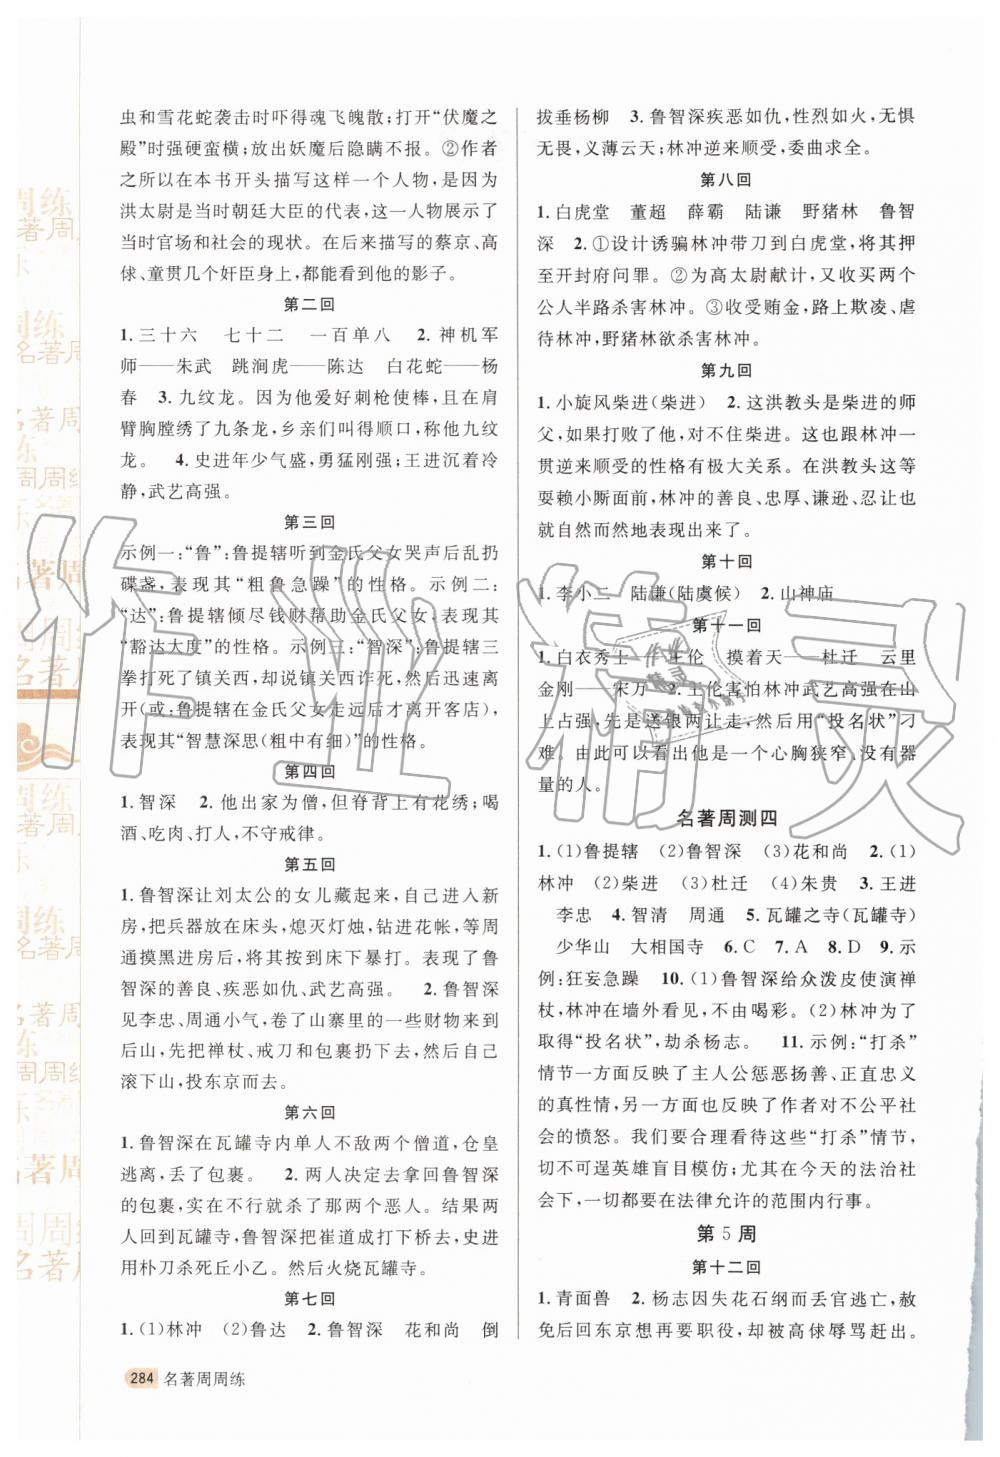 虫和雪花蛇袭击时吓得魂飞魄散；打开“伏魔之
殿”时强硬蛮横；放出妖魔后隐瞒不报。②作者
之所以在本书开头描写这样一个人物，是因为
洪太尉是当时朝廷大臣的代表，这一人物展示了
当时官场和社会的现状。在后来描写的蔡京、高
俅、童贯几个奸臣身上，都能看到他的影子。
第二回
1. 三十六　七十二　一百单八　2. 神机军
师——朱武　跳涧虎——陈达　白花蛇——杨
春　3. 九纹龙。因为他爱好刺枪使棒，且在肩
臂胸膛绣了九条龙，乡亲们叫得顺口，称他九纹
龙。　4. 史进年少气盛，勇猛刚强；王进沉着冷
静，武艺高强。
第三回
示例一：“鲁”：鲁提辖听到金氏父女哭声后乱扔
碟盏，表现其“粗鲁急躁”的性格。示例二：
“达”：鲁提辖倾尽钱财帮助金氏父女，表现其
“豁达大度”的性格。示例三：“智深”：鲁提辖三
拳打死了镇关西，却说镇关西诈死，然后迅速离
开（或：鲁提辖在金氏父女走远后才离开客店），
表现其“智慧深思（粗中有细）”的性格。
第四回
1. 智深　2. 他出家为僧，但脊背上有花绣；喝
酒、吃肉、打人，不守戒律。
第五回
1. 鲁智深让刘太公的女儿藏起来，自己进入新
房，把兵器放在床头，熄灭灯烛，钻进花帐，等周
通摸黑进房后，将其按在床下暴打。表现了鲁
智深的善良、疾恶如仇、武艺高强。　2. 鲁智深
见李忠、周通小气，卷了山寨里的一些财物来到
后山，先把禅杖、戒刀和包裹扔下去，然后自己
滚下山，投东京而去。
第六回
1. 鲁智深在瓦罐寺内单人不敌两个僧道，仓皇
逃离，丢了包裹。　2. 两人决定去拿回鲁智深
的包裹，实在不行就杀了两个僧道。结果两人
两人回到瓦罐寺，鲁智深把崔道成打下桥去，史进
用朴刀杀死丘小乙。然后火烧瓦罐寺。
第七回
1. (1)林冲　(2)鲁达　2. 鲁智深　花和尚　倒
拔垂杨柳　3. 鲁智深疾恶如仇，性烈如火，无惧
无畏，义薄云天；林冲逆来顺受，委曲求全。
第八回
1. 白虎堂　董超　薛霸　陆谦　野猪林　鲁智
深　2. ①设计诱骗林冲带刀到白虎堂，将其押
至开封府问罪。②为高太尉献计，又收买两个
公人半路杀害林冲。③收受贿金，路上欺凌、虐
待林冲，野猪林欲杀害林冲。
第九回
1. 小旋风柴进（柴进）　2. 这洪教头是柴进的师
父，如果打败了他，对不住柴进。这也跟林冲一
贯逆来顺受的性格有极大关系。在洪教头这等
耍赖小厮面前，林冲的善良、忠厚、谦逊、忍让也
就自然而然地表现出来了。
第十回
1. 李小二　陆谦（陆虞候）　2. 山神庙
第十一回
1. 白衣秀士——王伦　摸着天——杜迁　云里
金刚——宋万　2. 王伦害怕林冲武艺高强在山
上占强，先是送银两让走，然后用“投名状”刁
难。由此可以看出他是一个心胸狭窄、没有器
量的人。
名著周测四
1. (1)鲁提辖　(2)鲁智深　(3)花和尚　2. (1)
林冲　(2)柴进　(3)杜迁　(4)朱贵　3. 王进
李忠　4. 智清　周通　5. 瓦罐之寺（瓦罐寺）
少华山　大相国寺　6. C　7. A　8. D　9. 示
例：狂妄急躁　10. (1)鲁智深给众泼皮使演禅
杖，林冲在墙外看见，不由喝彩。(2)林冲为了
取得“投名状”，劫杀杨志。　11. 示例：“打杀”
情节一方面反映了主人公惩恶扬善、正直忠义
的真性情，另一方面反映了作者对不公平社
会的愤怒。我们要合理看待这些“打杀”情节，
切不可逞英雄盲目模仿；尤其在今天的法治社
会下，一切都要在法律允许的范围内行事。
第 5 周
第十二回
1. 青面兽　2. 杨志因失花石纲而丢官逃亡，赦
免后回东京想再要职役，却被高俅辱骂赶出。
284 名著周周练
作业精灵